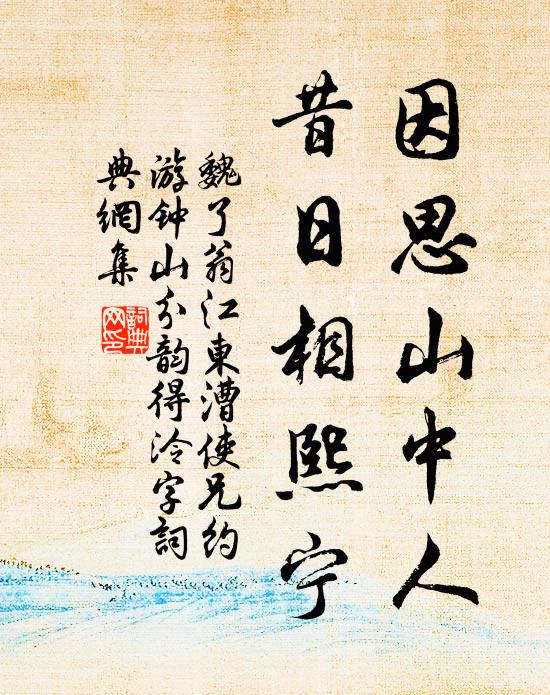 因思山中人
昔日相熙宁
魏了翁江東漕使兄约
游钟山分韵得泠字詞
典網集
詞典
网印